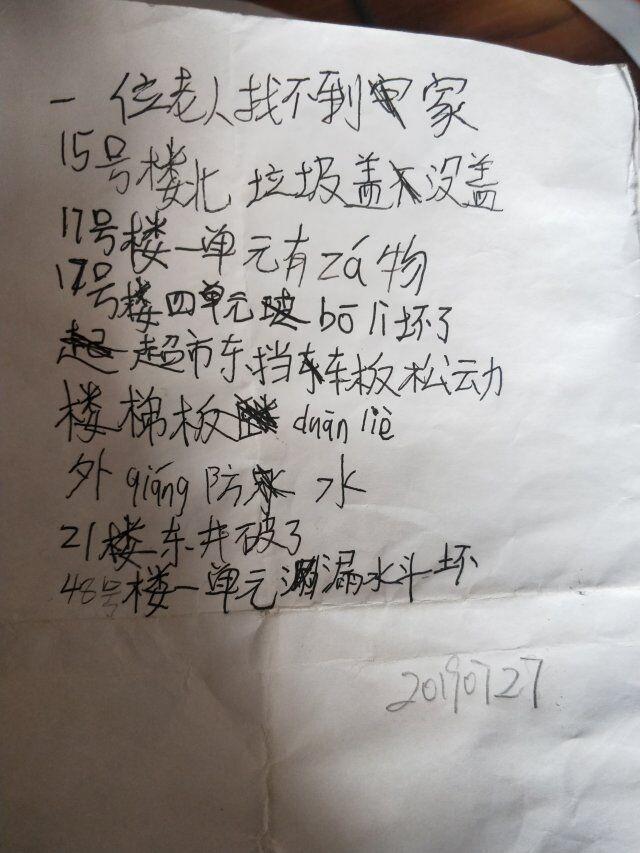 一位老人找不到家
15号楼北垃圾盖没盖
17号楼一单元有zá物
17号楼四单元玻bō li坏了
超市东挡车板松动
楼梯板duàn liè
外qiáng防水
21楼东井破了
48号楼一单元漏水斗坏
20190727